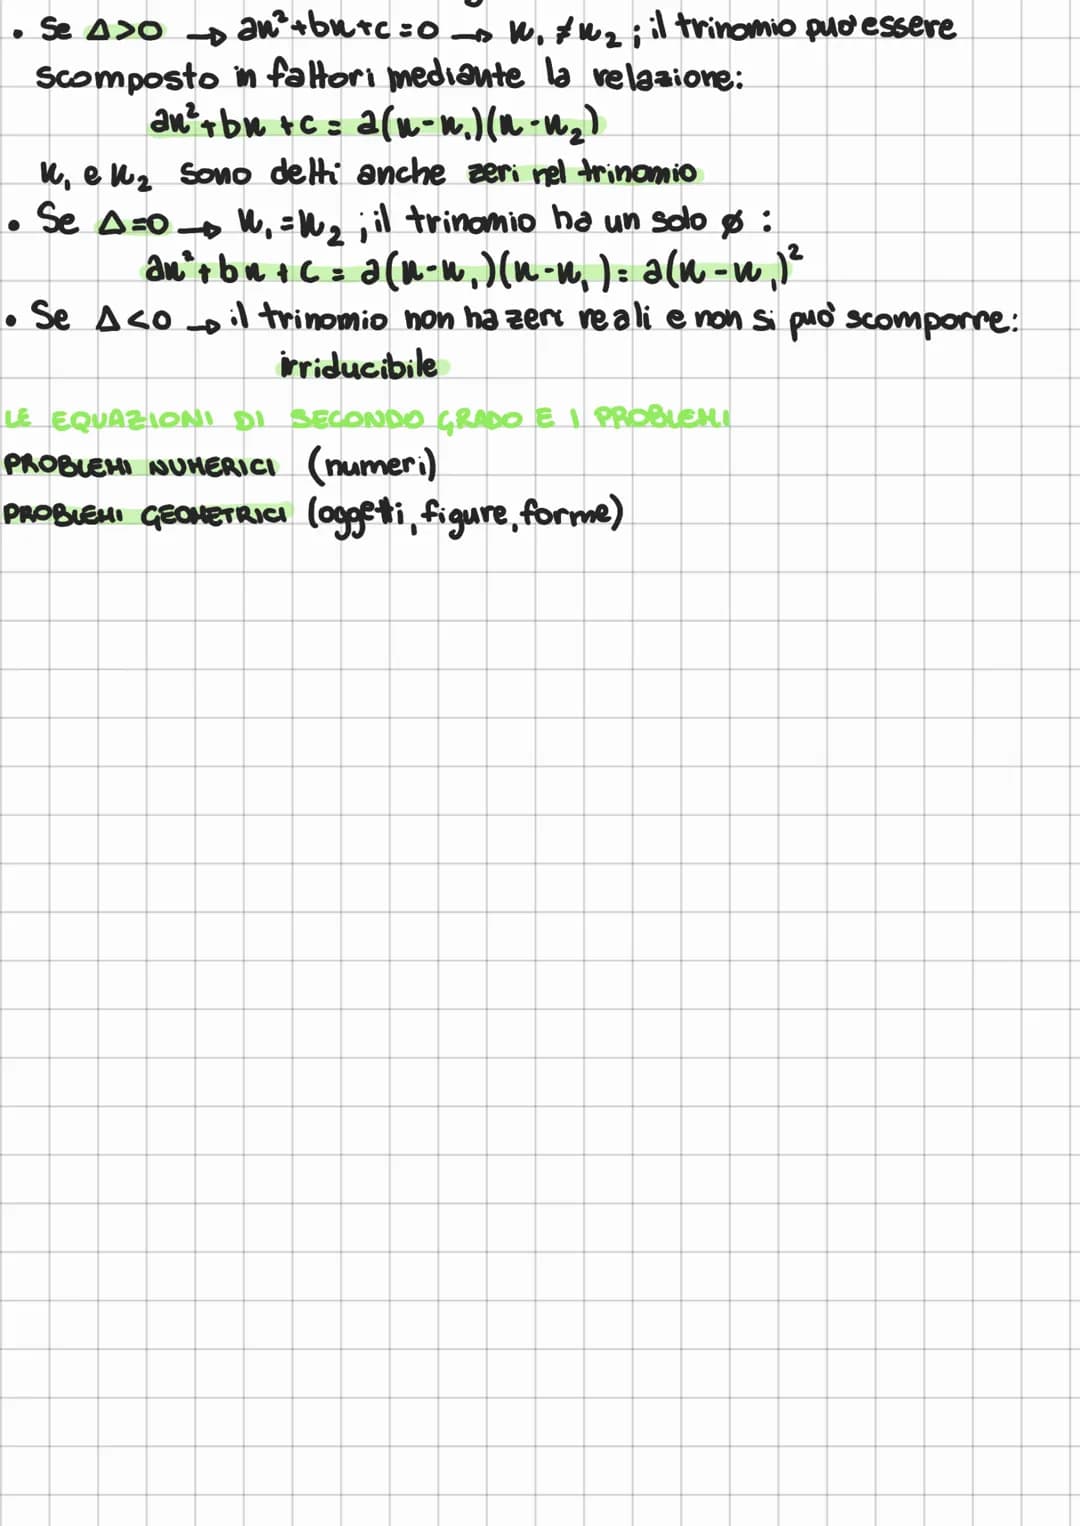 • Se Δ>0 → ax²+bx+c=0 → x₁ ≠ x₂ ; il trinomio può essere
scomposto in fattori mediante la relazione:
ax²+bx+c = a(x-x₁)(x-x₂)
x₁ e x₂ sono detti anche zeri nel trinomio
• Se Δ=0 → x₁=x₂ ; il trinomio ha un solo ø :
ax²+bx+c = a(x-x₁)(x-x₁) = a(x-x₁)²
• Se Δ<0 → il trinomio non ha zeri reali e non si può scomporre:
irriducibile
LE EQUAZIONI DI SECONDO GRADO E I PROBLEMI
PROBLEMI NUMERICI (numeri)
PROBLEMI GEOMETRICI (oggetti, figure, forme)